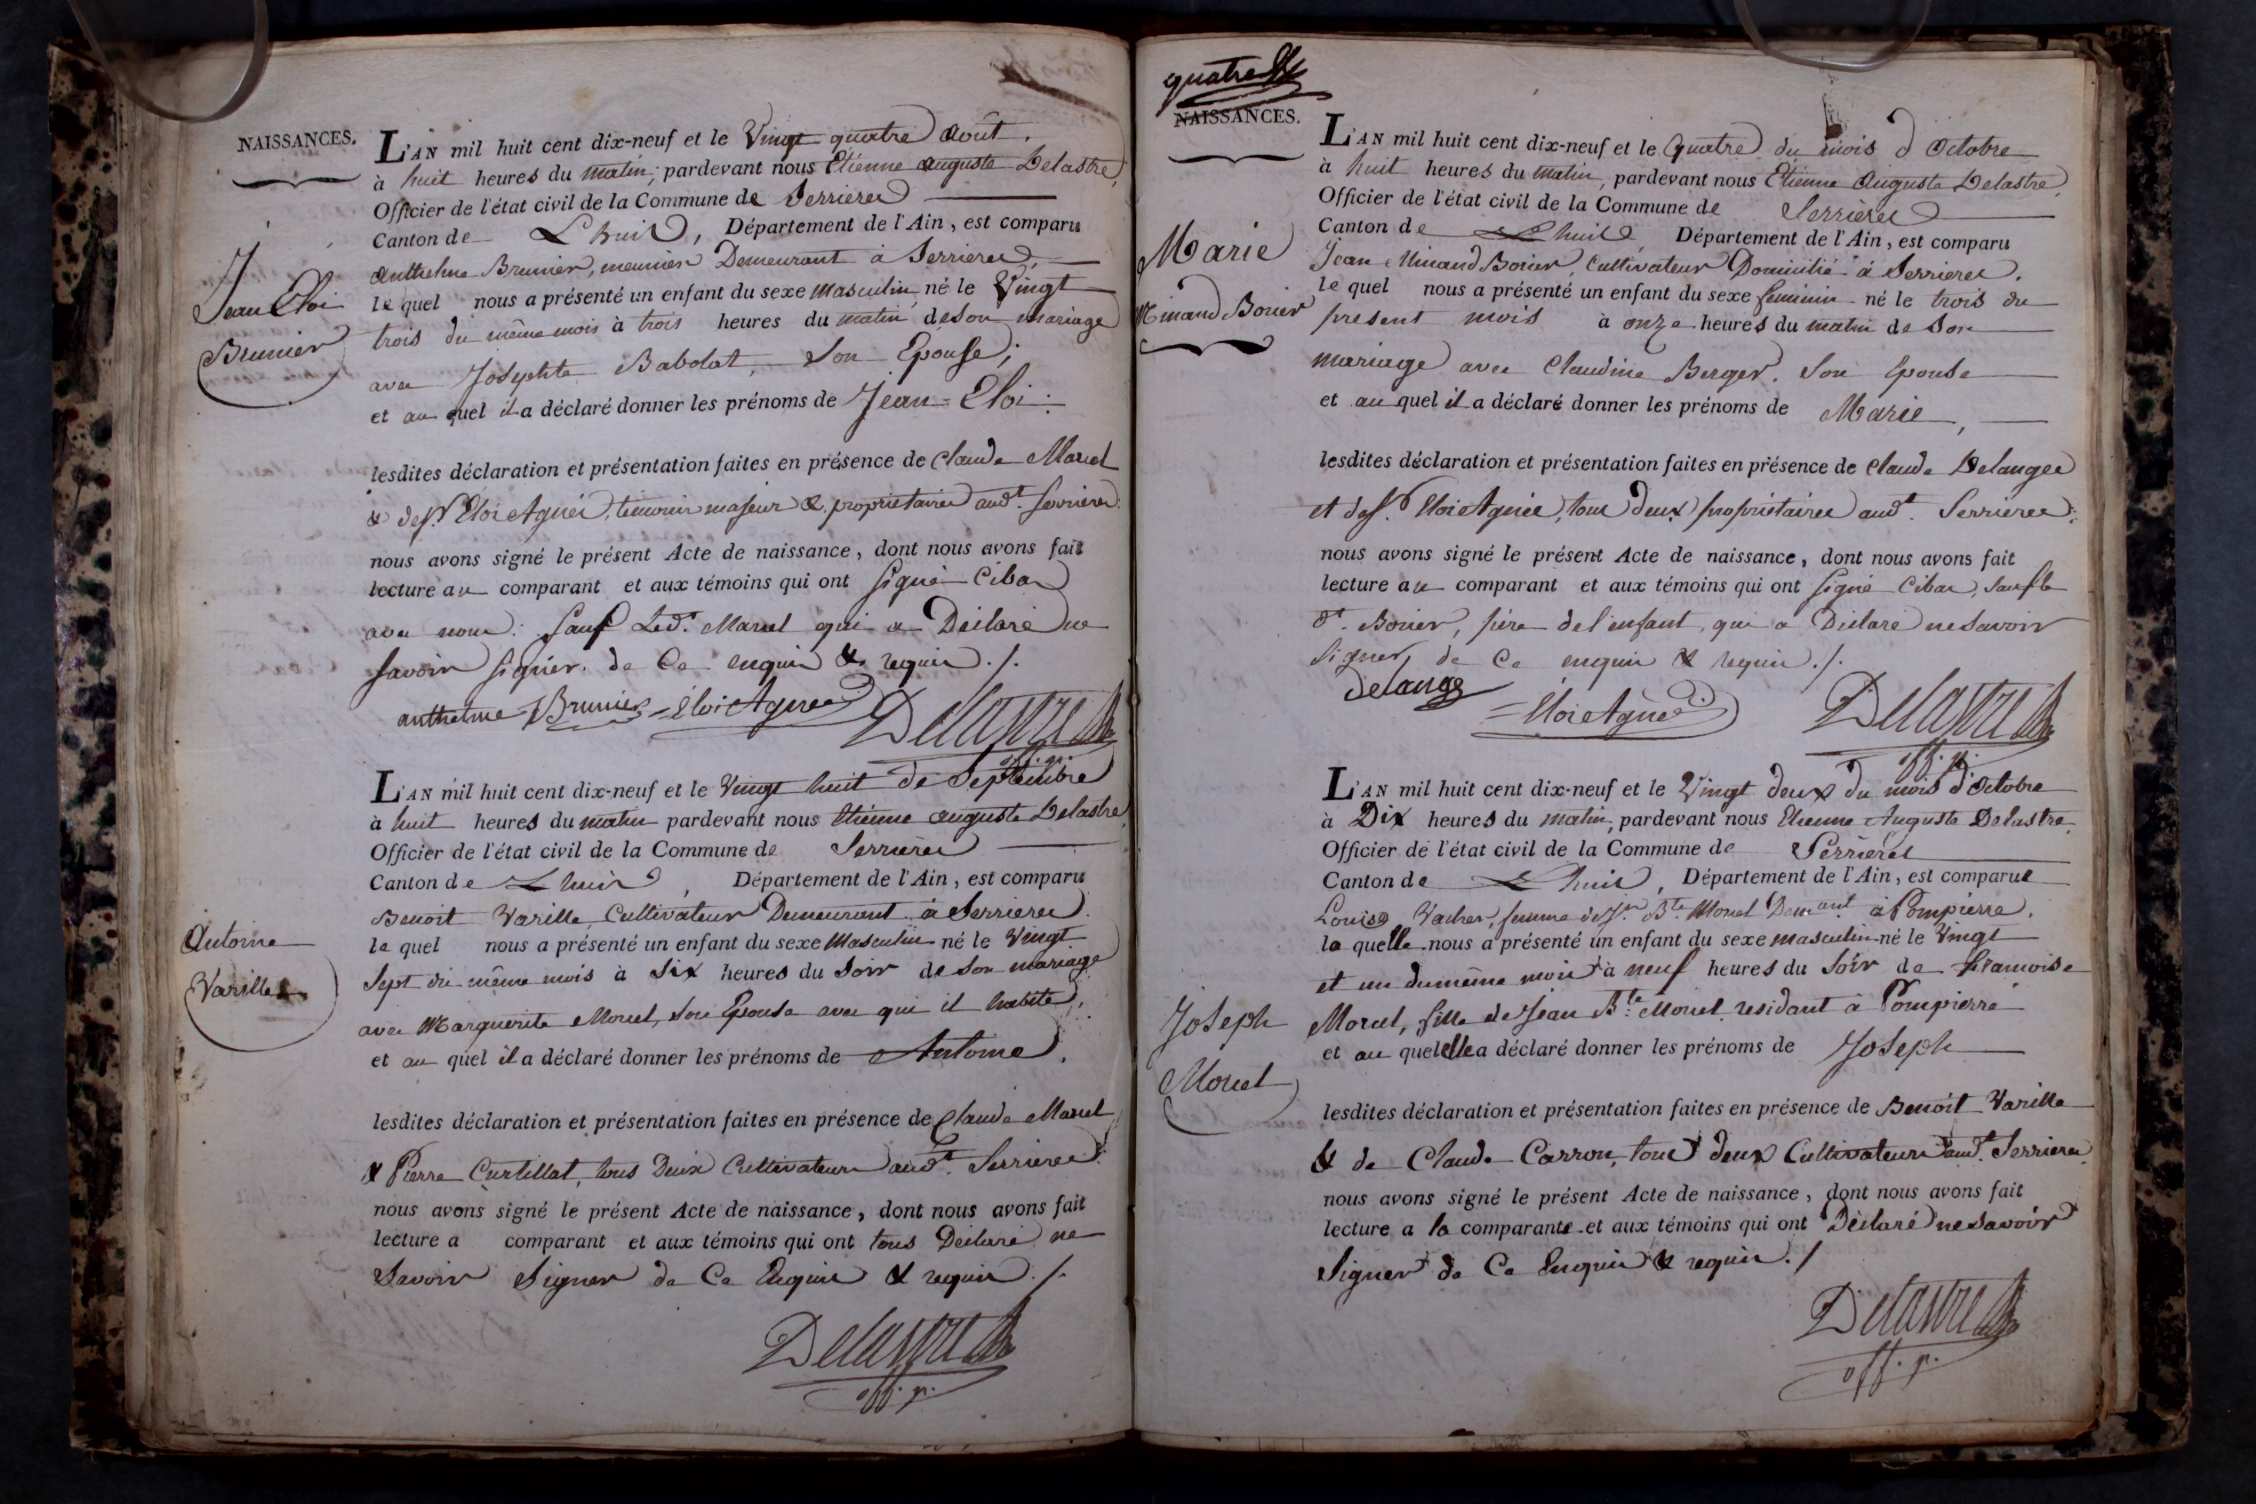 NAISSANCES.
L'AN mil huit cent dix-neuf et le Vingt quatre Août,
à huit heures du matin, pardevant nous Etienne auguste Delastre,
Officier de l'état civil de la Commune de Serrieres
Canton de L'huis, Département de l'Ain, est comparu
anthelme Brunier, meunier Demeurant à Serrieres,
le quel nous a présenté un enfant du sexe masculin né le Vingt
trois du même mois à trois heures du matin de son mariage
avec Josephte Babolat, Son Epouse;
et au quel il a déclaré donner les prénoms de Jean-Eloi.
Jean Eloi
Brunier
lesdites déclaration et présentation faites en présence de Claude Morel
& de Sr. Eloi Agniés, temoins majeurs & proprietaires audt. Serrieres.
nous avons signé le présent Acte de naissance, dont nous avons fait
lecture au comparant et aux témoins qui ont signé Cibas
avec nous: Sauf Ledt. Morel qui a Déclaré ne
savoir signer. de Ce enquis & requis./.
anthelme Brunier Eloi Agnes Delastre
off. p.
L'AN mil huit cent dix-neuf et le Vingt huit de Septembre
à huit heures du matin pardevant nous Etienne auguste Delastre,
Officier de l'état civil de la Commune de Serrières
Canton de L'huis, Département de l'Ain, est comparu
Benoit Varille, Cultivateur Demeurant à Serrieres.
le quel nous a présenté un enfant du sexe Masculin né le Vingt
Sept du même mois à Six heures du Soir de Son mariage
avec Marguerite Morel, Son Epouse avec qui il habite,
et au quel il a déclaré donner les prénoms de Antoine,
Antoine
Varille
lesdites déclaration et présentation faites en présence de Claude Morel
& Pierre Curtillat, tous Deux Cultivateurs audt. Serrieres.
nous avons signé le présent Acte de naissance, dont nous avons fait
lecture a comparant et aux témoins qui ont tous Déclaré ne
Savoir Signer de Ce Enquis & requis./.
Delastre
off. p.
quatre
NAISSANCES.
L'AN mil huit cent dix-neuf et le Quatre du mois d'Octobre
à huit heures du matin, pardevant nous Etienne Auguste Delastre,
Officier de l'état civil de la Commune de Serrières
Canton de L'huis, Département de l'Ain, est comparu
Jean Minand Borier, Cultivateur Domicilié à Serrieres.
le quel nous a présenté un enfant du sexe feminin né le trois du
present mois à onze heures du matin de Son
mariage avec Claudine Berger. Son Epouse
et au quel il a déclaré donner les prénoms de Marie,
Marie
Minand Borier
lesdites déclaration et présentation faites en présence de Claude Delange
et de Sr. Eloi Agniés, tous deux proprietaires audt. Serrieres.
nous avons signé le présent Acte de naissance, dont nous avons fait
lecture au comparant et aux témoins qui ont signé Cibas, Sauf le
dt. Borier, père de l'enfant, qui a Déclaré ne savoir
Signer, de Ce enquis & requis./.
Delange Eloi Agnes Delastre
off. p.
L'AN mil huit cent dix-neuf et le Vingt deux du mois d'Octobre
à Dix heures du matin, pardevant nous Etienne Auguste Delastre,
Officier de l'état civil de la Commune de Serrières
Canton de L'huis, Département de l'Ain, est comparue
Louise Vacher, femme de Jn. Bte. Morel Demant. à Pompierre,
la quelle nous a présenté un enfant du sexe masculin né le Vingt
et un du même mois à neuf heures du Soir de Framoise
Morel, fille de Jean Bte. Morel residant à Pompierre
et au quel elle a déclaré donner les prénoms de Joseph
Joseph
Morel
lesdites déclaration et présentation faites en présence de Benoit Varille
& de Claude Carron, tous deux Cultivateurs audt. Serrieres,
nous avons signé le présent Acte de naissance, dont nous avons fait
lecture a la comparante et aux témoins qui ont Déclaré ne Savoir
Signer de Ce Enquis & requis./
Delastre
off. p.